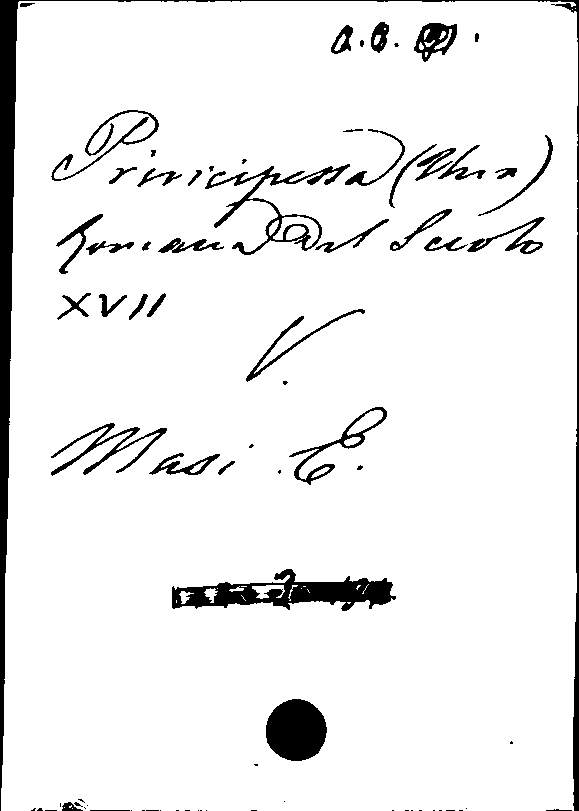 Principessa (Una)
Romana del Secolo
XVII
V.
Masi E.